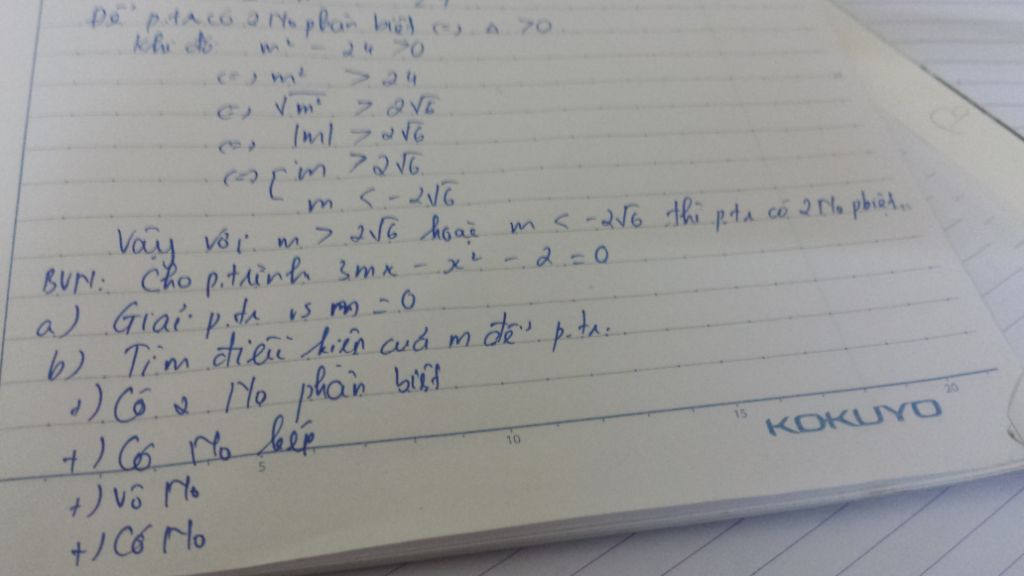 Để p.tr có 2 No phân biệt <=> Δ > 0
Khi đó m² - 24 > 0
<=> m² > 24
<=> √m² > 2√6
<=> |m| > 2√6
<=> [ m > 2√6
m < -2√6
Vậy với m > 2√6 hoặc m < -2√6 thì p.tr có 2 No pbiệt.
BVN: Cho p.trình 3mx - x² - 2 = 0
a) Giải p.tr vs m = 0
b) Tìm điều kiện cuả m để p.tr:
+) Có 2 No phân biệt
+) Có No kép
+) Vô No
+) Có No
5 10 15 20
KOKUYO